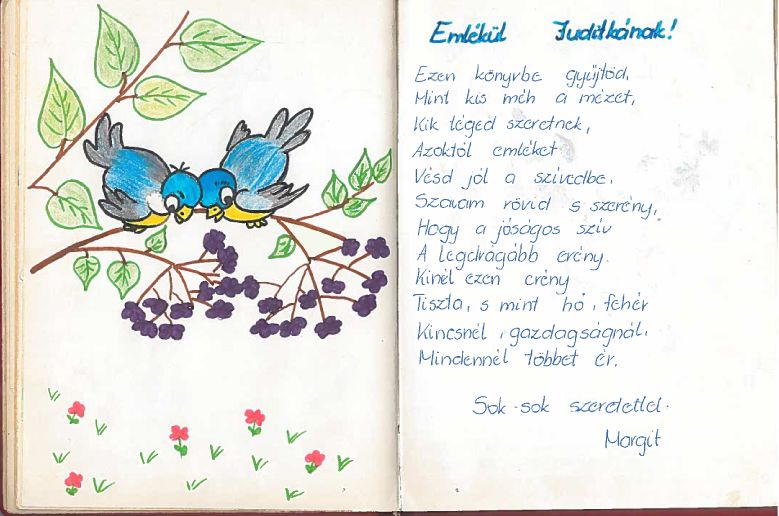 Emlékül Juditkának!
Ezen könyvbe gyűjtöd,
Mint kis méh a mézet,
Kik téged szeretnek,
Azoktól emléket
Vésd jól a szívedbe,
Szavam rövid s szerény,
Hogy a jóságos szív
A legdrágább erény.
Kinél ezen erény
Tiszta, s mint hó, fehér
Kincsnél, gazdagságnál,
Mindennél többet ér.
Sok-sok szeretettel.
Margit